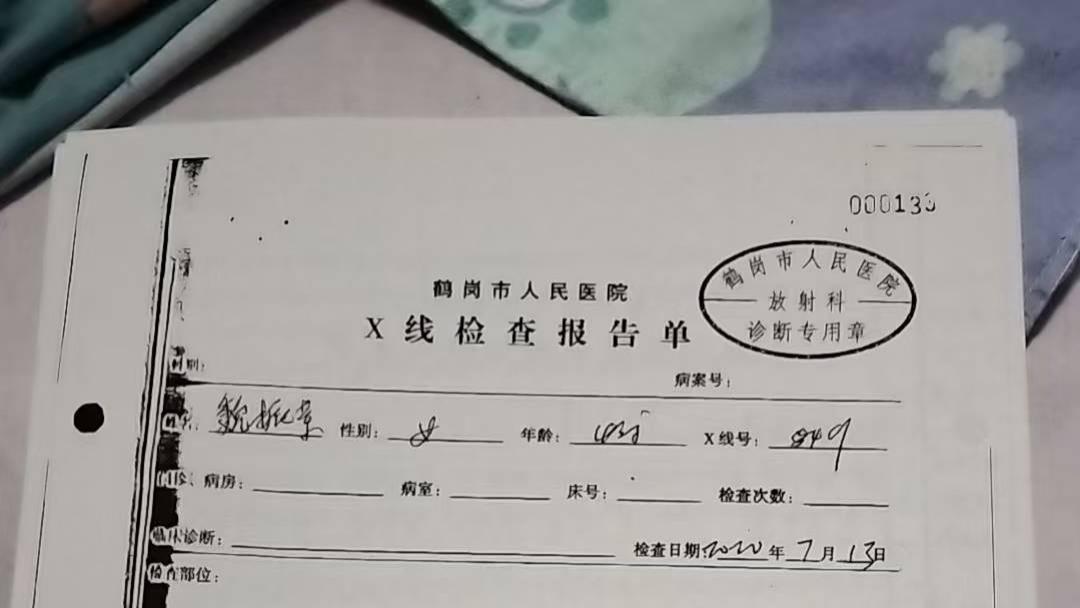 鹤岗市人民医院
放射科
诊断专用章
鹤岗市人民医院
X线检查报告单
病案号:
姓名: 性别: 女 年龄: X线号:
门诊、病房: 病室: 床号: 检查次数:
临床诊断: 检查日期 2020年7月13日
检查部位: